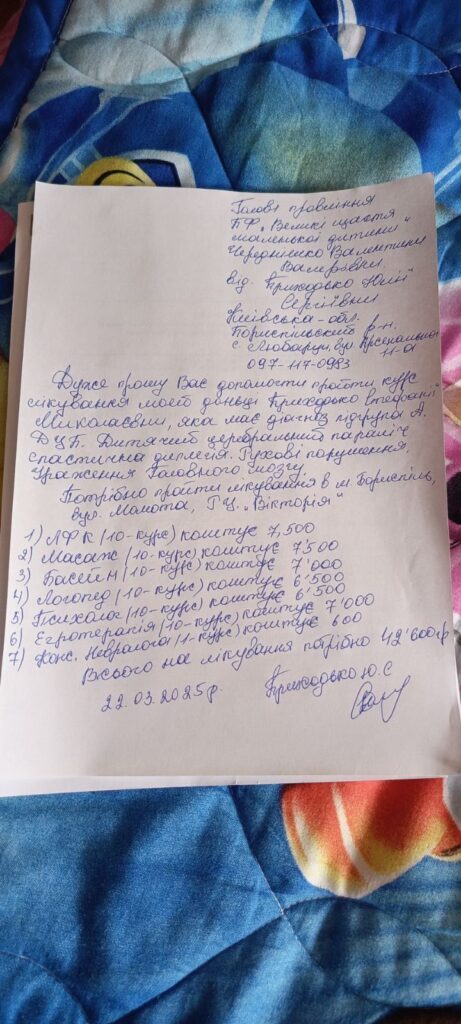 Голові правління
БФ „Великі щастя
маленької дитини"
Чередніченко Валентини
Валеріївни.
від Приходько Юлії
Сергіївни
Київська-обл.
Бориспільський р-н.
с. Любарці, вул. Арсенальна
11-01
097-117-0983
Дуже прошу Вас допомогти пройти курс
лікування моєї доньці Приходько Стефанії
Миколаєвни, яка має діагноз підгрупа А.
ДЦП. Дитячий церебральний параліч
спастична диплегія. Рухові порушення.
Ураження Головного мозгу.
Потрібно пройти лікування в м. Бориспіль,
вул. Мамота, РЦ „Вікторія"
1) ЛФК (10-курс) коштує 7,500
2) Масаж (10-курс) коштує 7'500
3) Басейн (10-курс) коштує 7'000
4) Логопед (10-курс) коштує 6'500
5) Психолог (10-курс) коштує 6'500
6) Егротерапія (10-курс) коштує 7'000
7) Конс. Невролога (1-курс) коштує 600
Всього на лікування потрібно 42'600гр
22.03.2025р. Приходько Ю.С